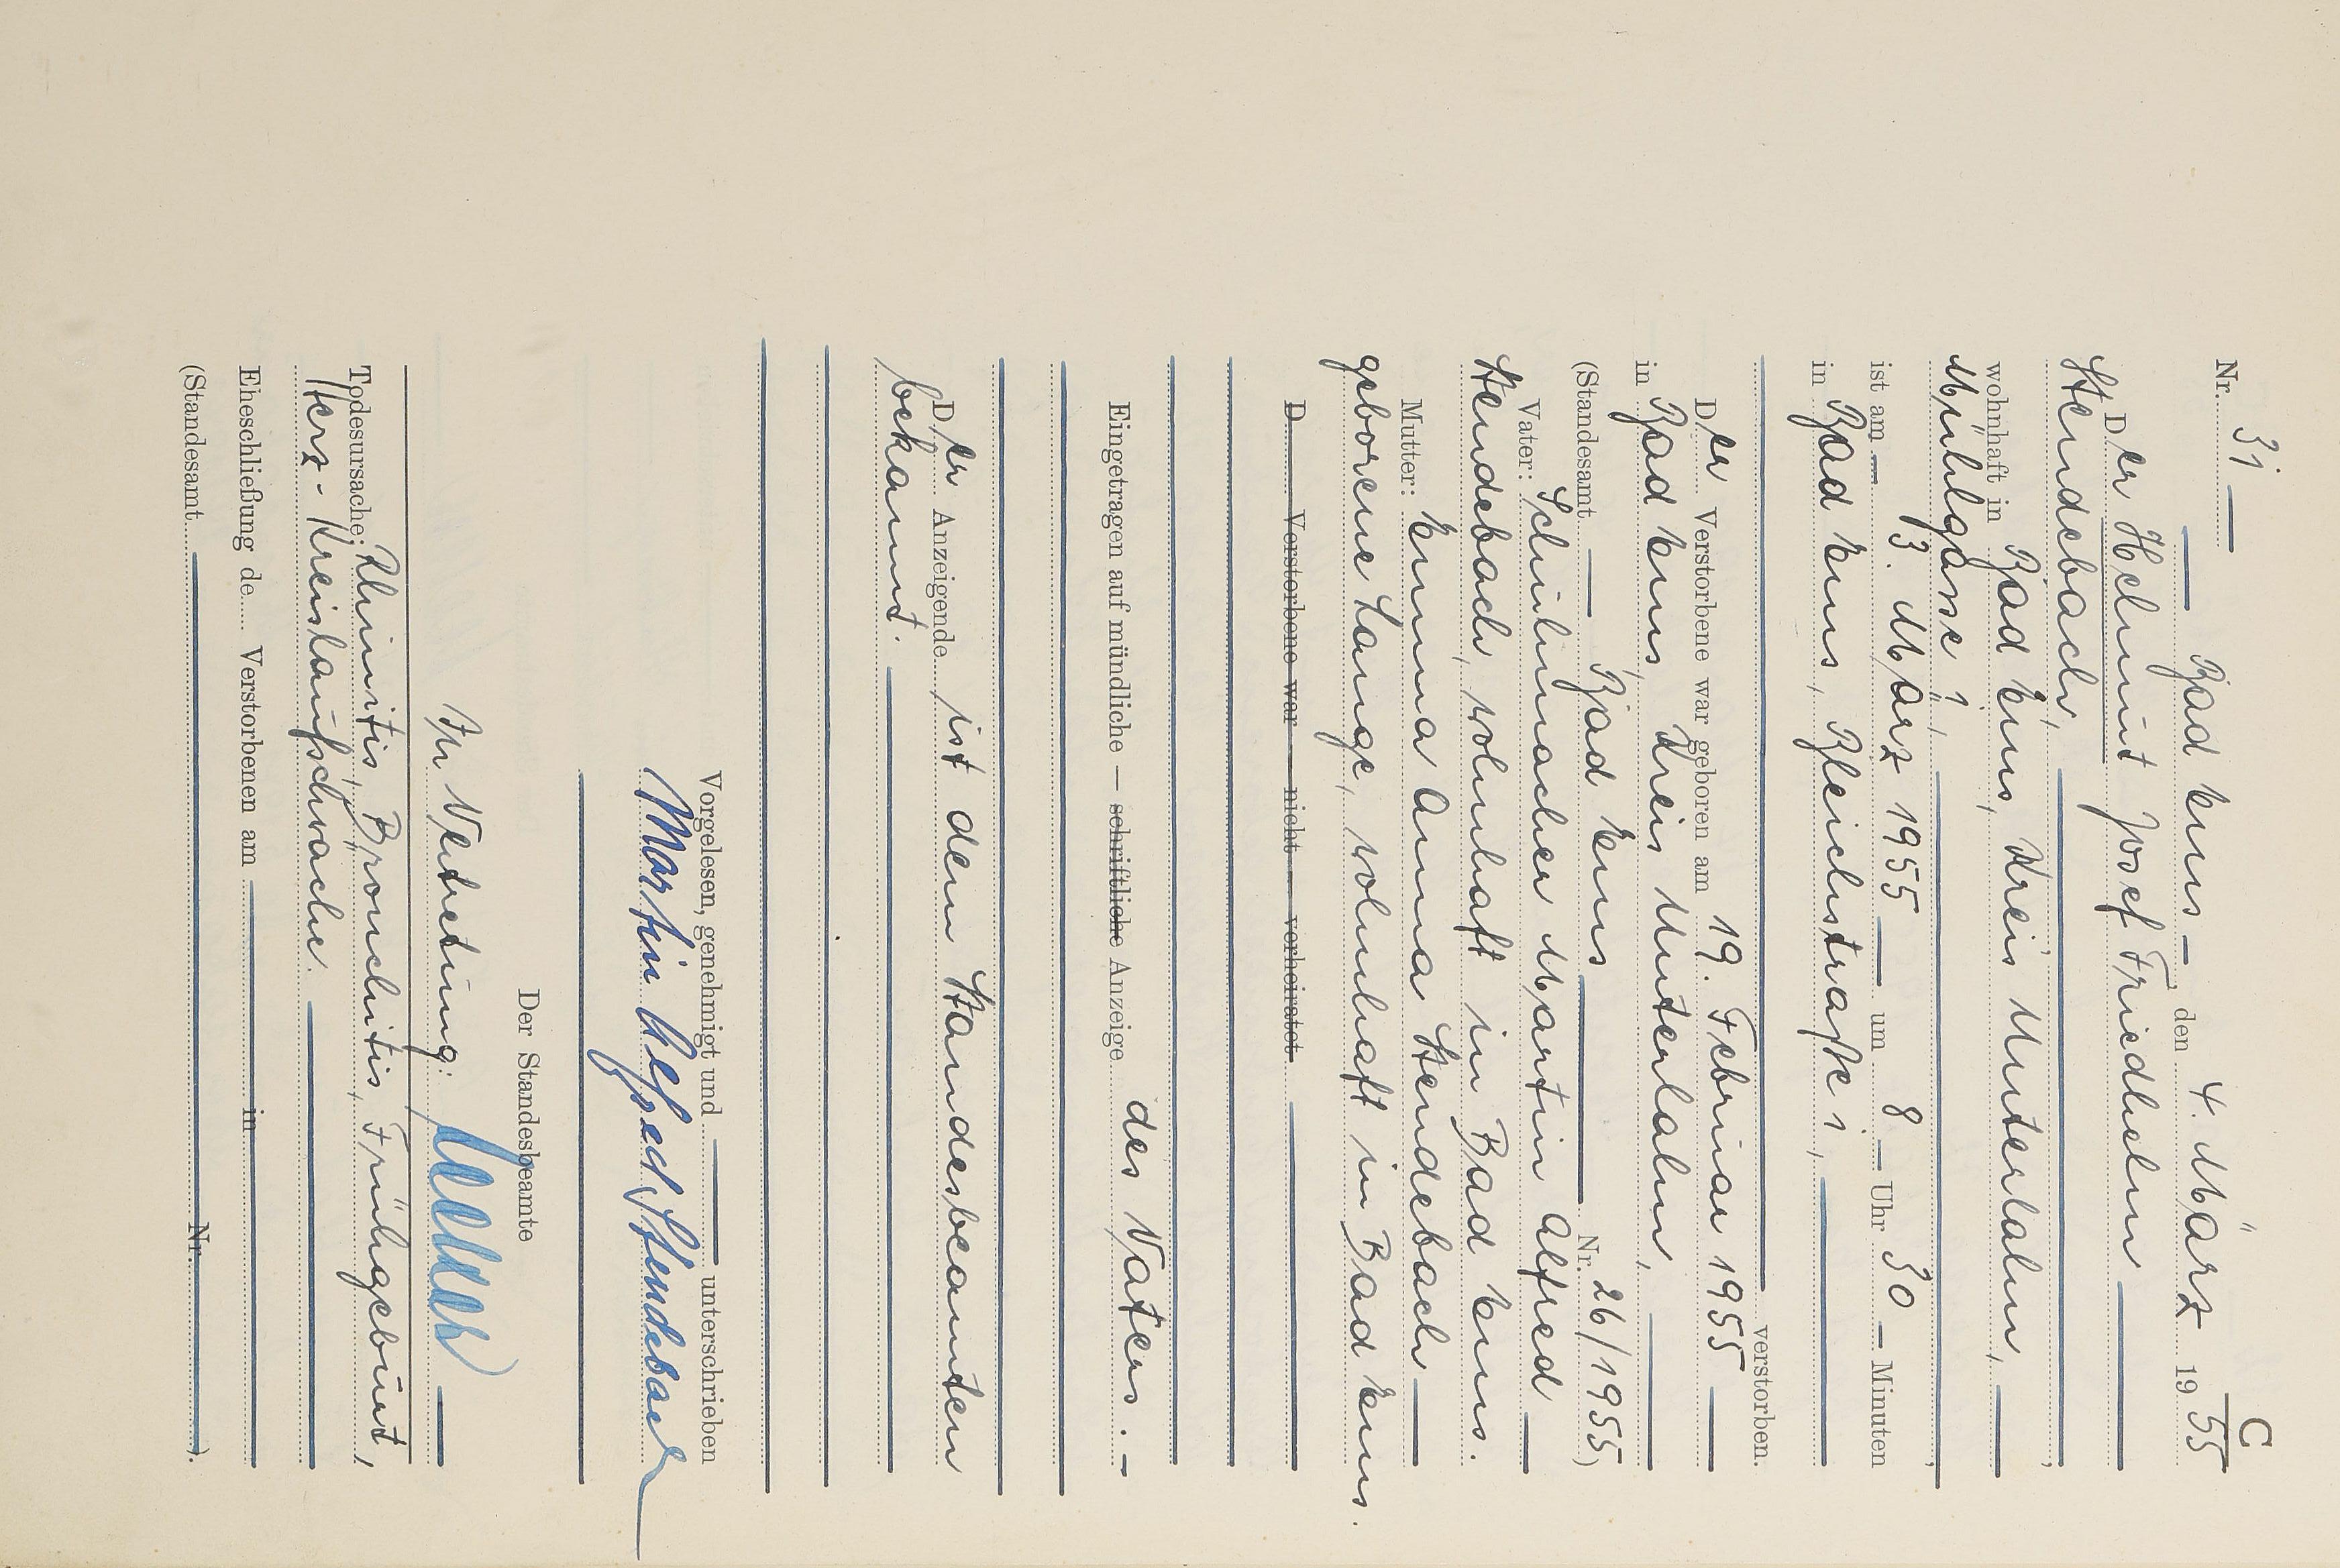 C
Nr. 31
Bad Ems, den 4. März 1955
Der Helmut Josef Friedhelm
Stendebach,
wohnhaft in Bad Ems, Kreis Unterlahn,
Mühlgasse 1,
ist am 3. März 1955 um 8 Uhr 30 Minuten
in Bad Ems, Bleichstraße 1,
verstorben.
Der Verstorbene war geboren am 19. Februar 1955
in Bad Ems, Kreis Unterlahn,
(Standesamt Bad Ems Nr. 26/1955)
Vater: Schuhmacher Martin Alfred
Stendebach, wohnhaft in Bad Ems.
Mutter: Emma Anna Stendebach
geborene Lange, wohnhaft in Bad Ems.
D Verstorbene war — nicht — verheiratet
Eingetragen auf mündliche — schriftliche Anzeige des Vaters.
Der Anzeigende ist dem Standesbeamten
bekannt.
Vorgelesen, genehmigt und unterschrieben
Martin Alfred Stendebach
Der Standesbeamte
In Vertretung:
Todesursache: Rhinitis, Bronchitis, Frühgeburt,
Herz-Kreislaufschwäche.
Eheschließung de Verstorbenen am in
(Standesamt Nr. ).